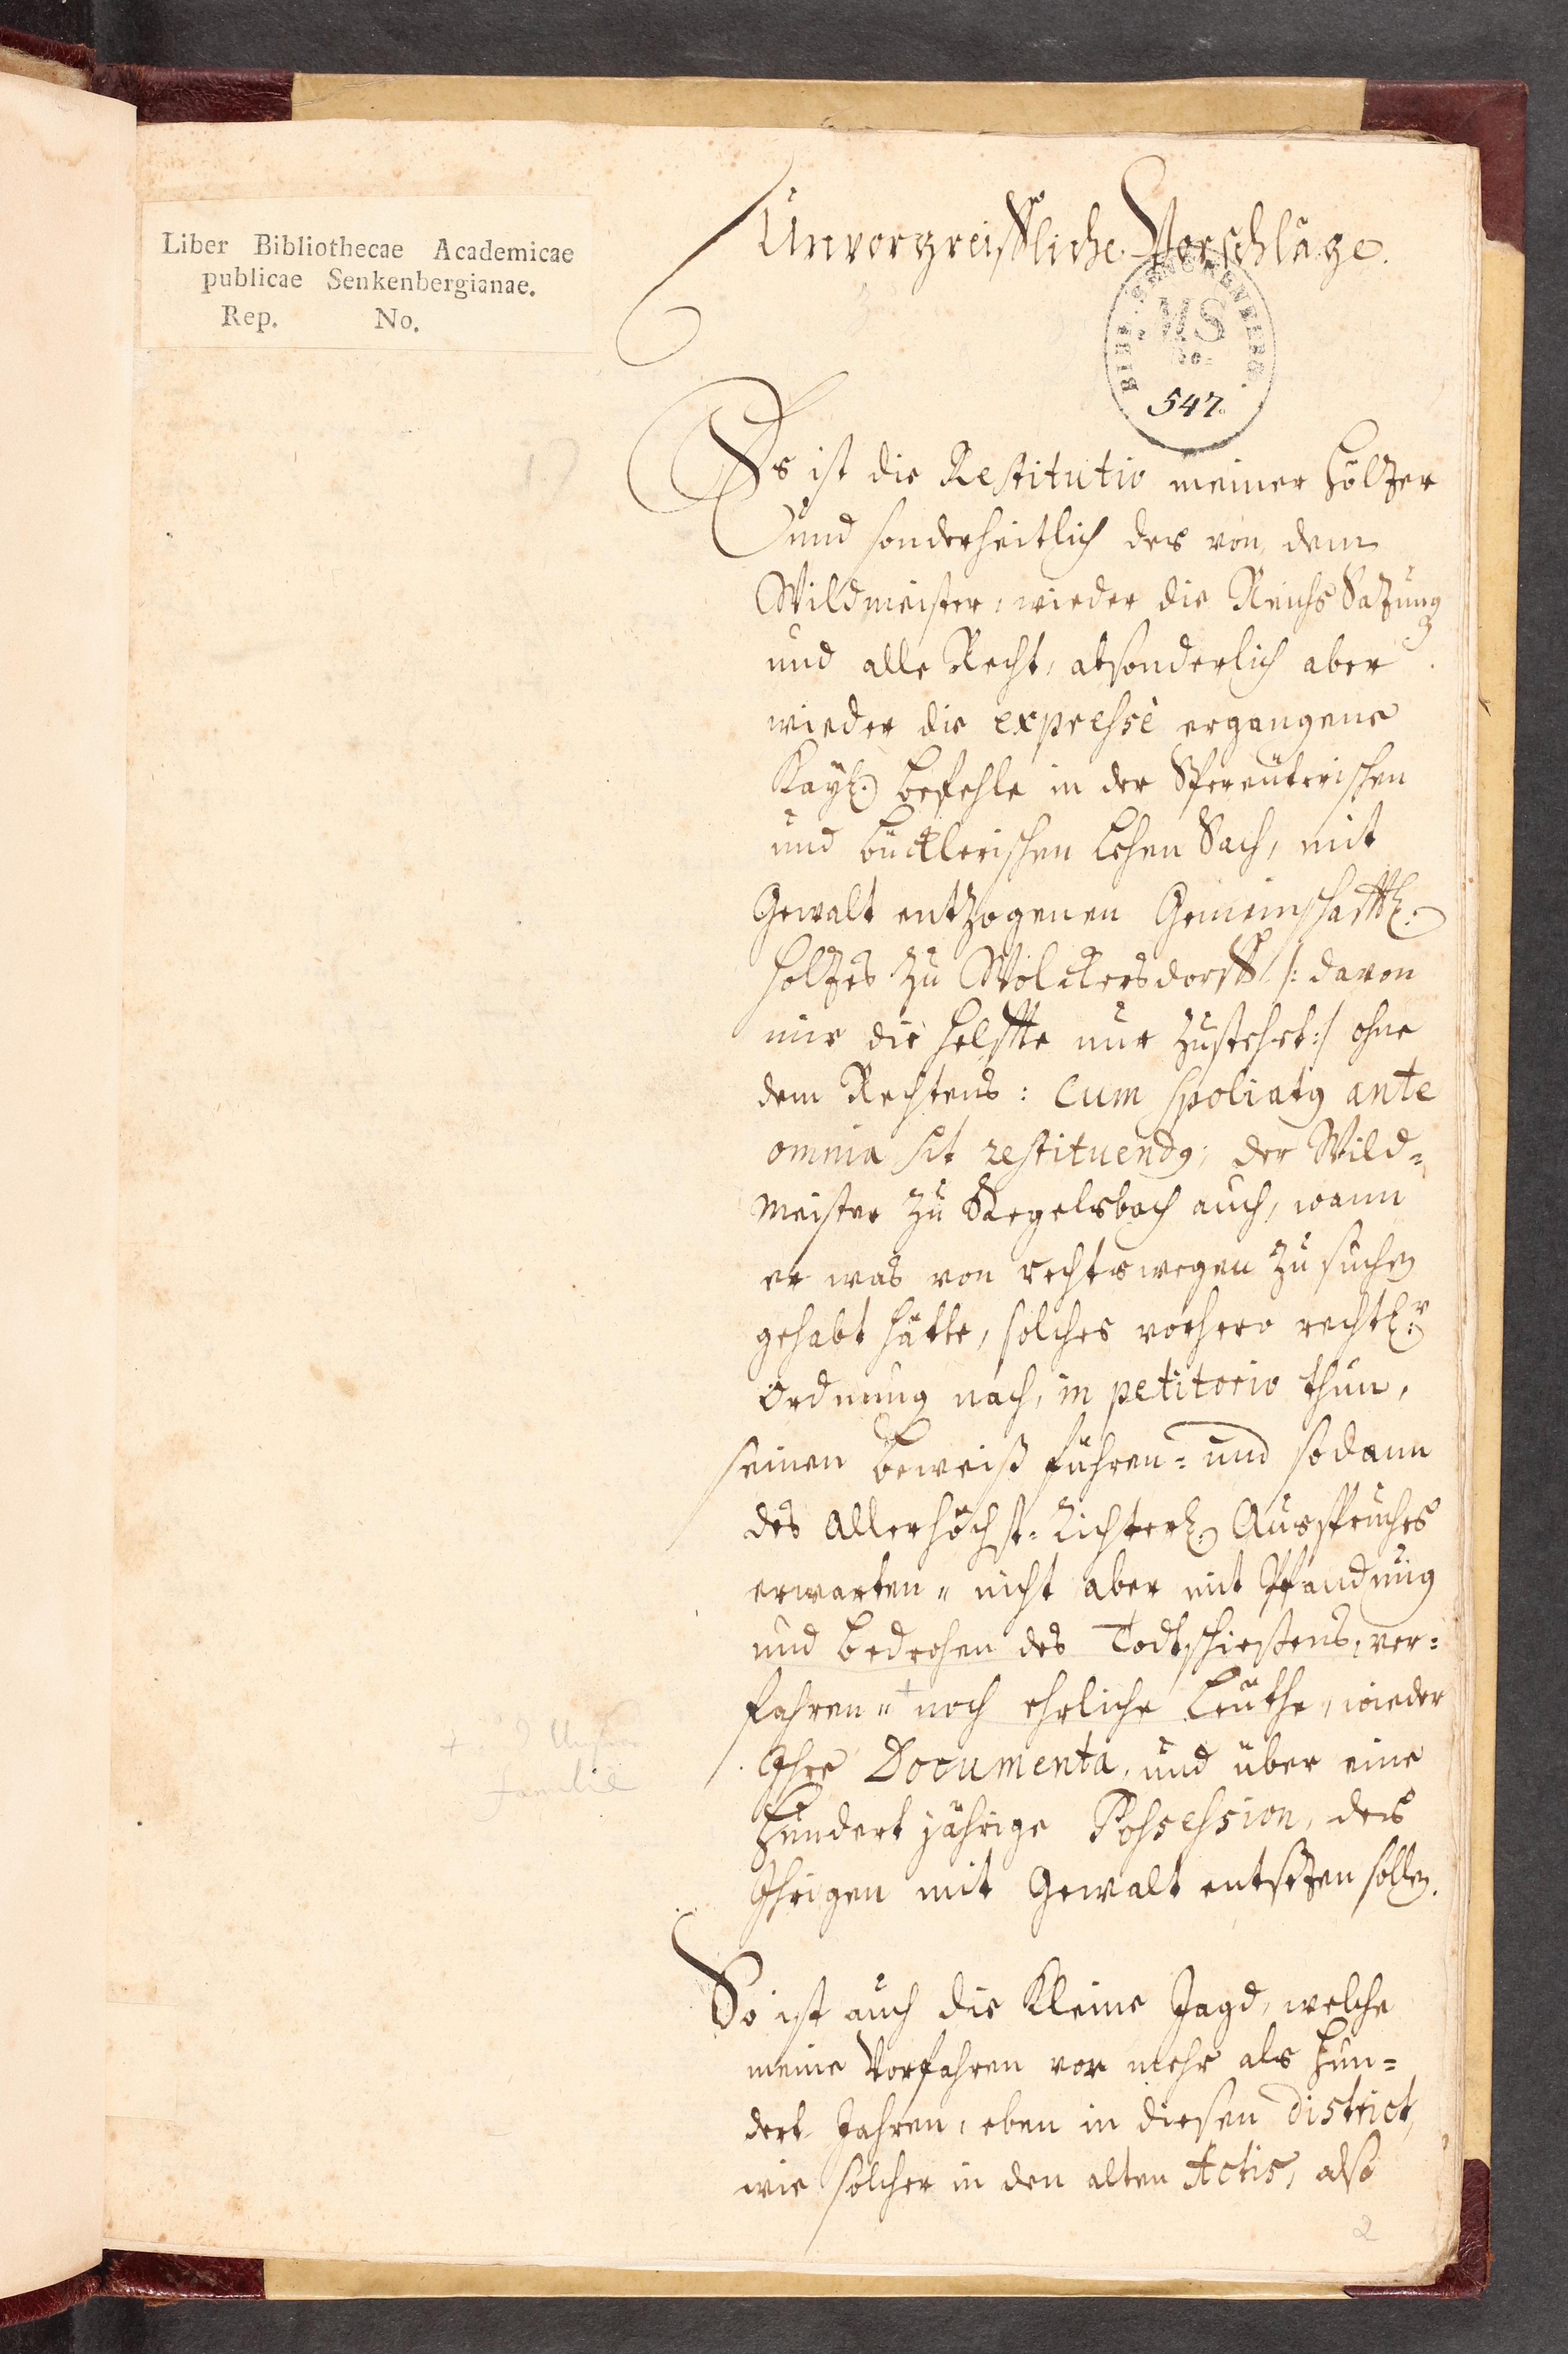 Liber Bibliothecae Academicae
publicae Senkenbergianae.
Rep. No.
Unvorgreiffliche Vorschläge.
BIBL. SENCKENBERG.
MS
547.
Es ist die Restitutio meiner Höltzer
und sonderheitlich des von dem
Wildmeister, wieder die Reichs Satzung
und alle Recht, absonderlich aber
wieder die expressè ergangene
Kayl. Befehle in der Spereuterischen
und Bücklerischen Lehen Sach, mit
Gewalt entzogenen Gemeinschafftl.
Holtzes zu Wolckersdorff /: davon
mir die Helffte nur zustehet :/ ohne
dem Rechtens: Cum spoliatus ante
omnia sit restituendus; der Wild=
meister zu Kegelsbach auch, wann
er was von rechtswegen zu suchen
gehabt hätte, solches vorhero rechtl.r
Ordnung nach, in petitorio thun,
seinen Beweiß führen= und sodann
des Allerhöchst= Richterl. Ausspruches
erwarten „ nicht aber mit Pfandung
und Bedrohen des Todtschießens, ver=
fahren „ + noch ehrliche Leuthe, wieder
Ihre Documenta, und über eine
Hundert jährige Possession, des
Ihrigen mit Gewalt entsetzen sollen.
+
familie
So ist auch die Kleine Jagd, welche
meine Vorfahren vor mehr als Hun=
dert Jahren, eben in diesen District,
wie solcher in den alten Actis, also
2